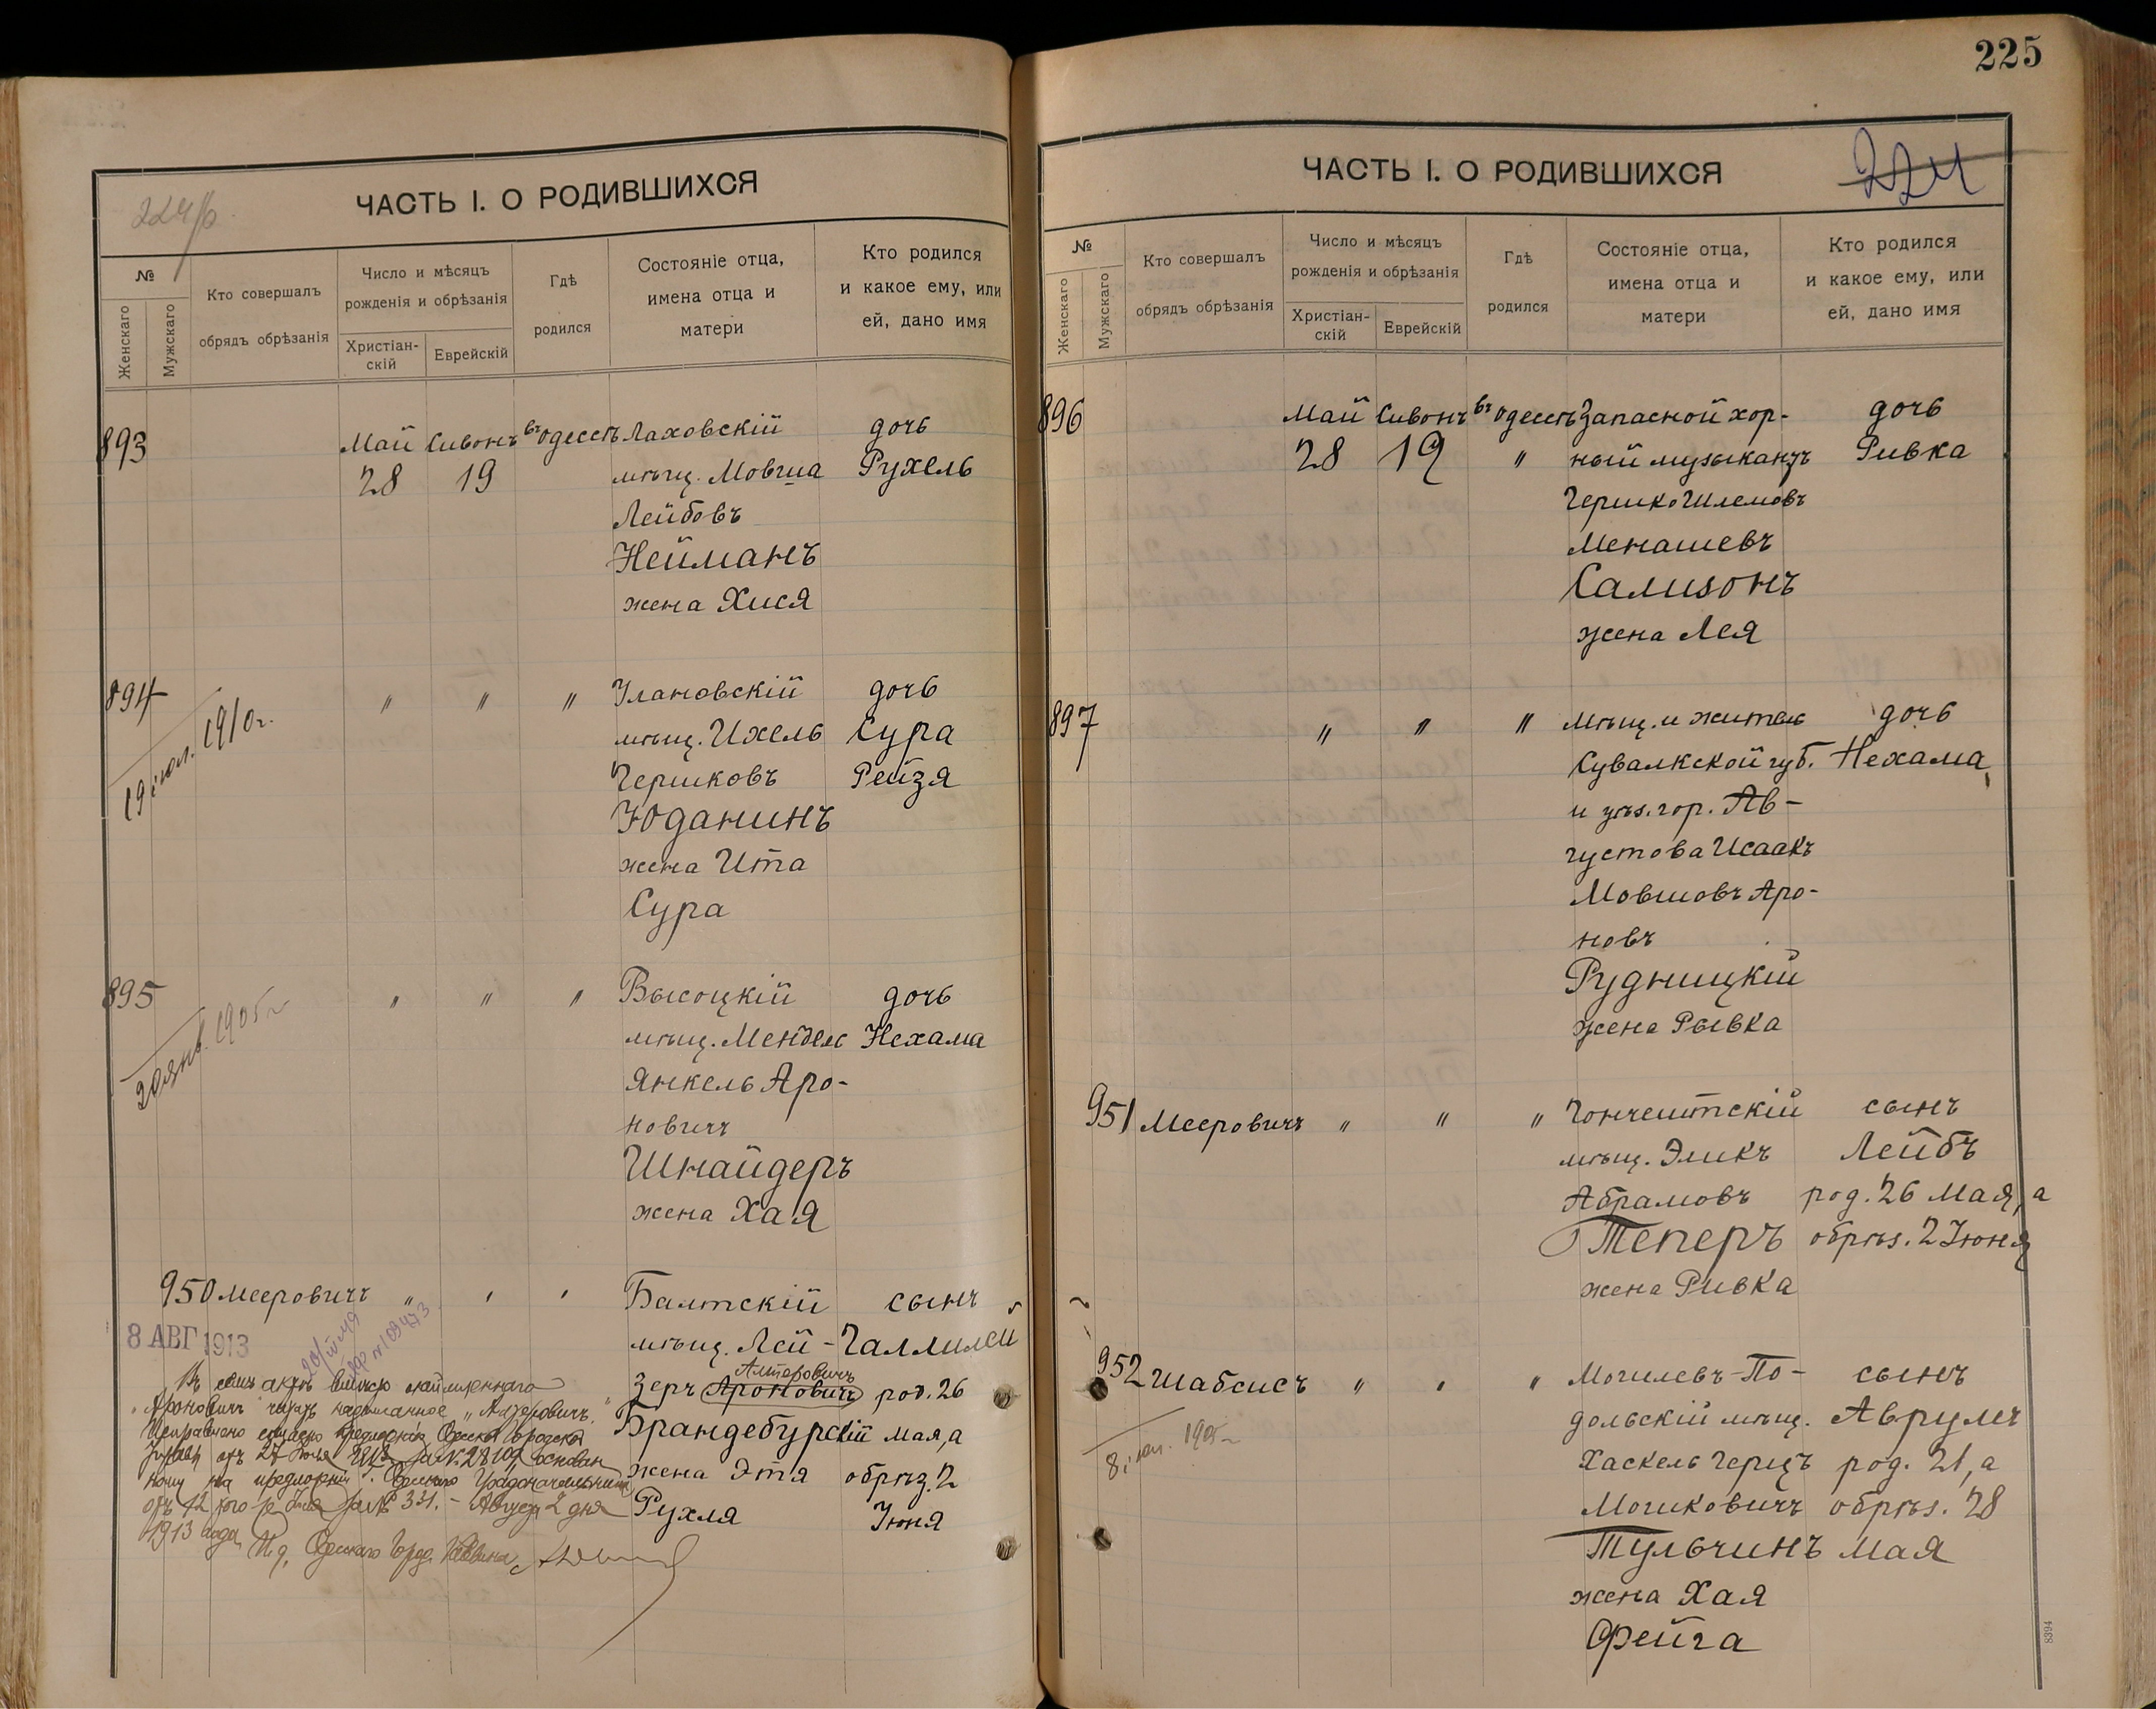 224/б
ЧАСТЬ I. О РОДИВШИХСЯ
№
Женскаго
Мужскаго
Кто совершалъ
обрядъ обрѣзанія
Число и мѣсяцъ
рожденія и обрѣзанія
Христіан-
скій
Еврейскій
Гдѣ
родился
Состояніе отца,
имена отца и
матери
Кто родился
и какое ему, или
ей, дано имя
893 Май Сивонъ въ Одессѣ Лаховскій дочь
28 19 мѣщ. Мовша Рухель
Лейбовъ
Нейманъ
жена Хися
894 " " " Улановскій дочь
19 іюл. 1910 г.
мѣщ. Ихель Сура
Гершковъ Рейзя
Юданинъ
жена Ита
Сура
895 " " " Высоцкій дочь
20 янв. 1905 г
мѣщ. Мендель Нехама
Янкель Аро-
новичъ
Шнайдеръ
жена Хая
950 Мееровичъ " " " Балтскій сынъ
8 АВГ 1913
мѣщ. Лей- Галлилей
Алтеровичъ
зеръ Ароновичъ род. 26
Брандебурскій мая, а
жена Этя обрѣз. 2
Рухля Іюня
Въ семъ актѣ вмѣсто
"Ароновичъ" читать надписанное "Алтеровичъ."
Исправлено согласно предложенія Одесской Городской
Управы отъ 27 Іюля 1913 за №28109 основан
ному на предложеніи Г. Одесскаго Градоначальника
отъ 12 того же Іюля за № 331. - Августа 2 дня
1913 года И.д. Одесскаго Город. Раввина
225
ЧАСТЬ I. О РОДИВШИХСЯ
224
№
Женскаго
Мужскаго
Кто совершалъ
обрядъ обрѣзанія
Число и мѣсяцъ
рожденія и обрѣзанія
Христіан-
скій
Еврейскій
Гдѣ
родился
Состояніе отца,
имена отца и
матери
Кто родился
и какое ему, или
ей, дано имя
896 Май Сивонъ въ Одессѣ Запасной хор- дочь
28 19 " ный музыкантъ Ривка
Гершко Шлемовъ
Менашевъ
Сализонъ
жена Лея
897 " " " мѣщ. и житель дочь
Сувалкской губ. Нехама
и уѣз. гор. Ав-
густова Исаакъ
Мовшовъ Аро-
новъ
Рудницкій
жена Рывка
951 Мееровичъ " " " Гончештскій сынъ
мѣщ. Эликъ Лейбъ
Абрамовъ род. 26 Мая, а
Теперъ обрѣз. 2 Іюня
жена Ривка
952 Шабсисъ " " " Могилевъ-По- сынъ
8 1905
дольскій мѣщ. Аврумъ
Хаскель Герцъ род. 21, а
Мошковичъ обрѣз. 28
Тульчинъ мая
жена Хая
Фейга
8394